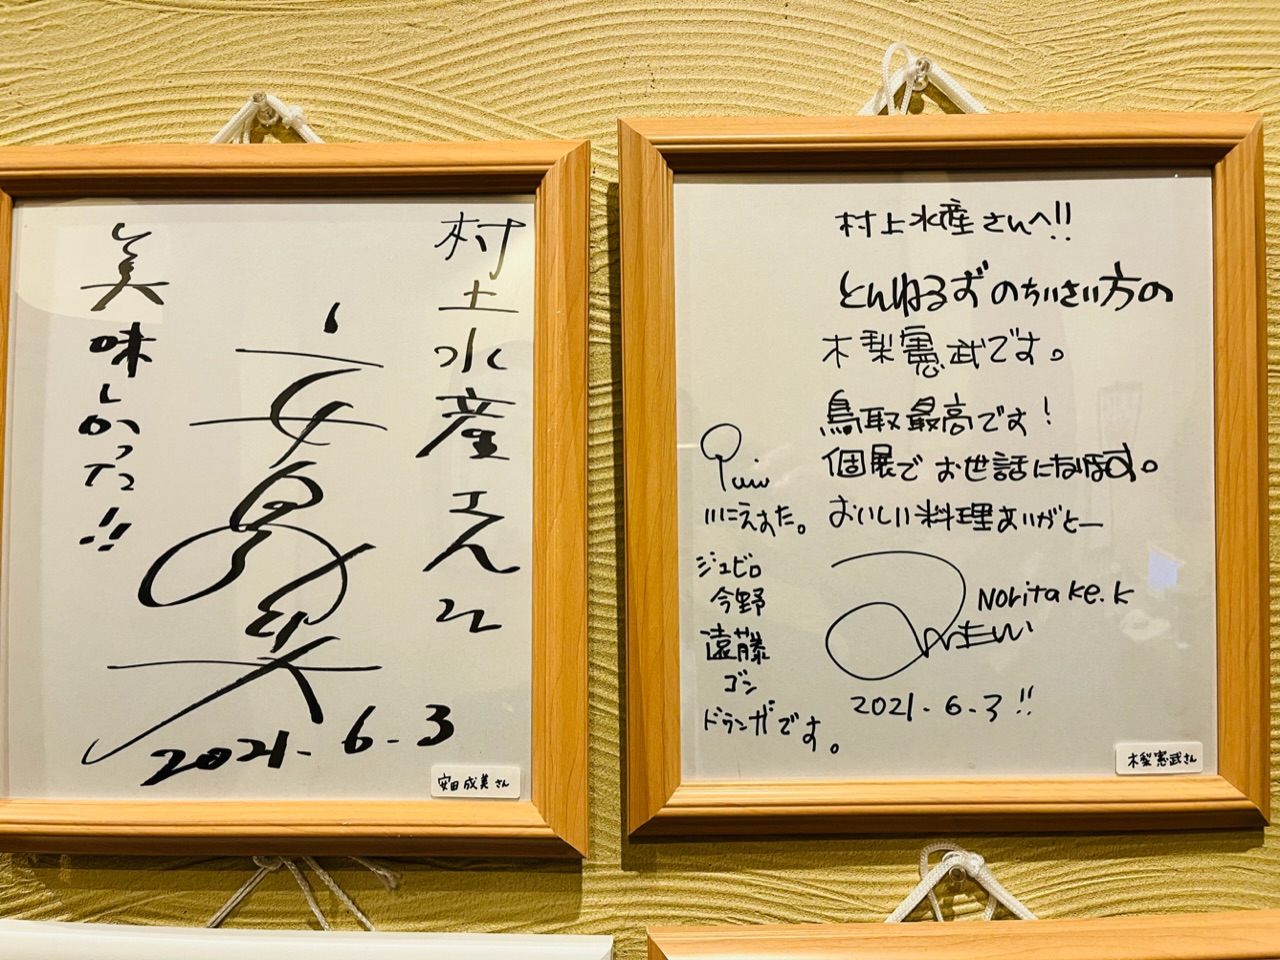 村上水産さん江
安田成美
美味しかった!!
2021-6-3
安田成美さん
村上水産さんへ!!
とんねるずのちいさい方の
木梨憲武です。
鳥取最高です!
個展でお世話になります。
おいしい料理ありがとー
Noritake.K
2021-6-3!!
ジュビロ
今野
遠藤
ゴン
ドゥンガです。
木梨憲武さん